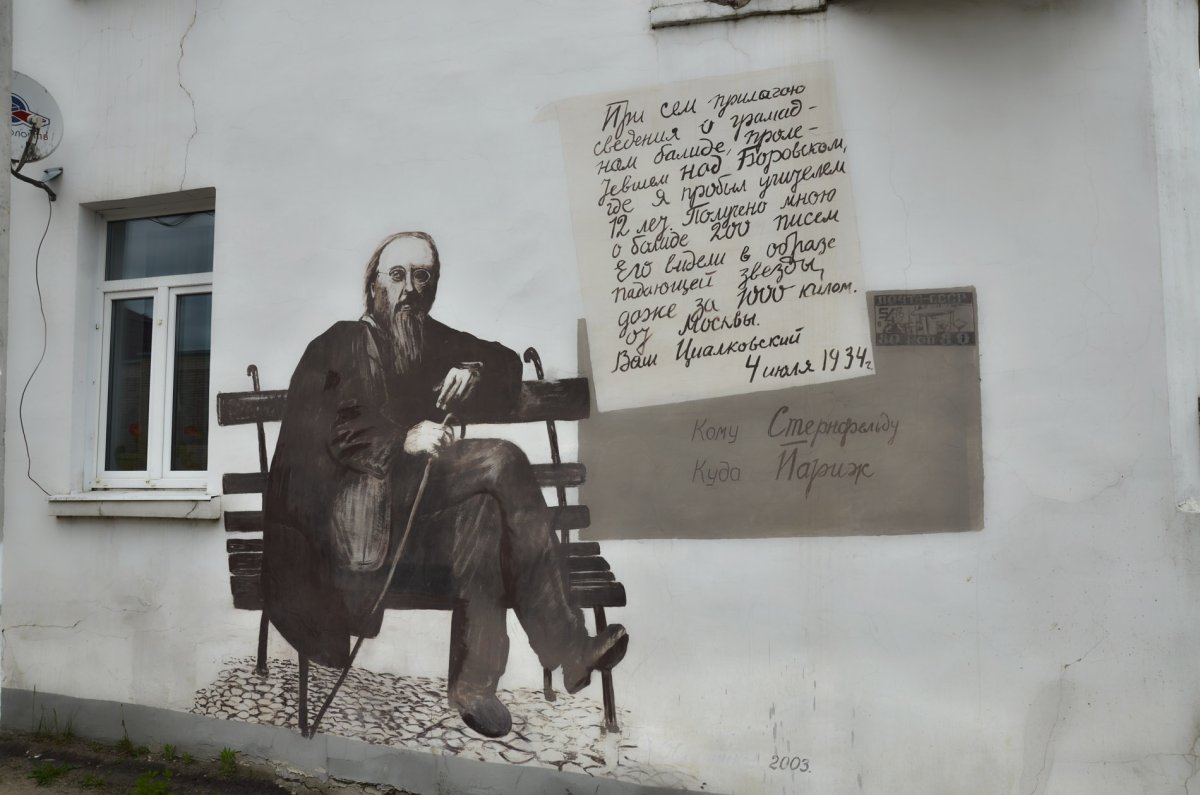 При сем прилагаю
сведения о громад-
ном балиде, проле-
тевшем над Боровском,
где я пробыл учителем
12 лет. Получено мною
о балиде 200 писем
Его видели в образе
падающей звезды,
даже за 1000 килом.
от Москвы.
Ваш Циалковский
4 июля 1934 г.
ПОЧТА СССР
Кому Стернфельду
Куда Париж
2003.